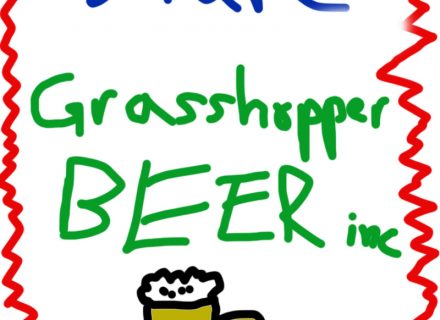 Grasshopper
BEER inc